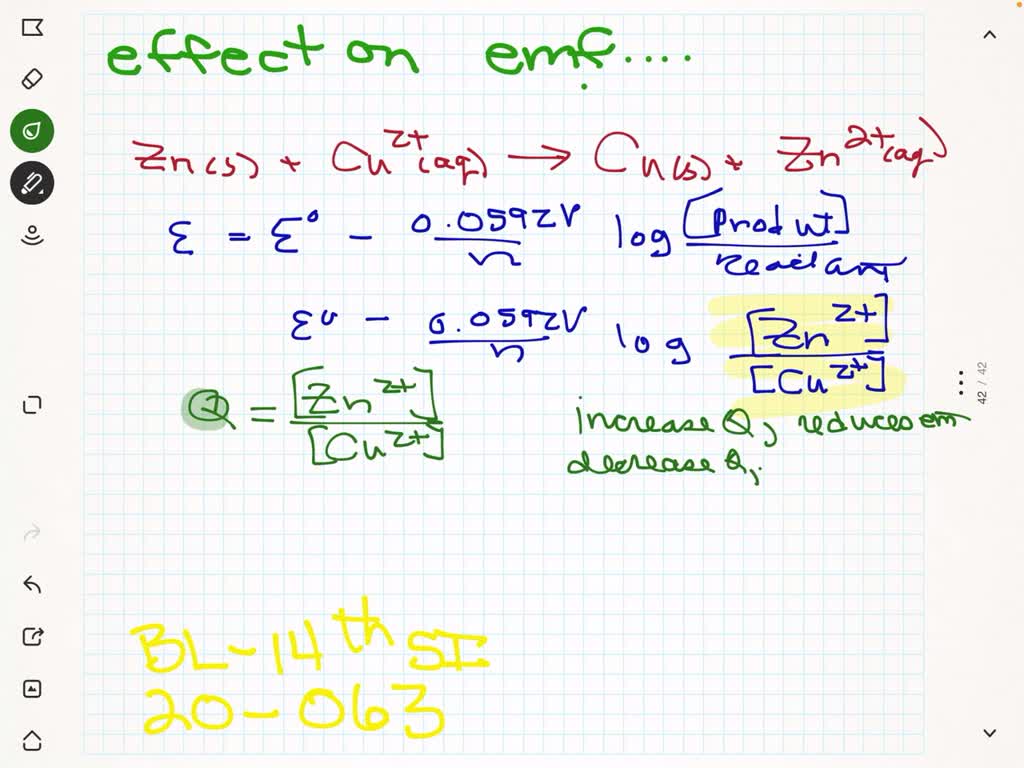 effect on emf....
Zn(s) + Cu²⁺(aq) → Cu(s) + Zn²⁺(aq)
ε = ε° - 0.0592V/n log [Produt]/reactant
ε° - 0.0592V/n log [Zn²⁺]/[Cu²⁺]
Q = [Zn²⁺]/[Cu²⁺]
increase Q, reduces em
decrease Q,
BL-14th SI
20-063
42 / 42